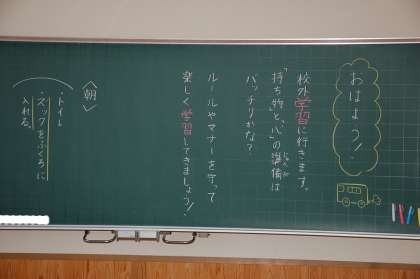 おはよう!!
校外学習に行きます。
「持ち物」と、「心」の準備は
じゅんび
バッチリかな?
ルールやマナーを守って
楽しく学習してきましょう!!
〈朝〉
・トイレ
・ズックをふくろに
入れる。